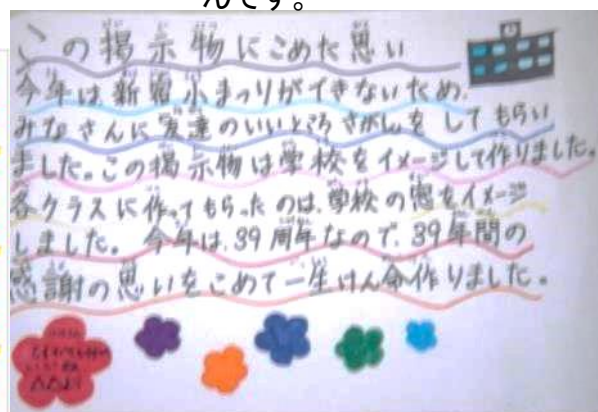 んです。
この掲示物にこめた思い
今年は、新宿小まつりができないため、
みなさんに友達のいいところさがしをしてもらい
ました。この掲示物は学校をイメージして作りました。
各クラスに作ってもらったのは、学校の窓をイメージ
しました。今年は、39周年なので、39年間の
感謝の思いをこめて一生けん命作りました。
より